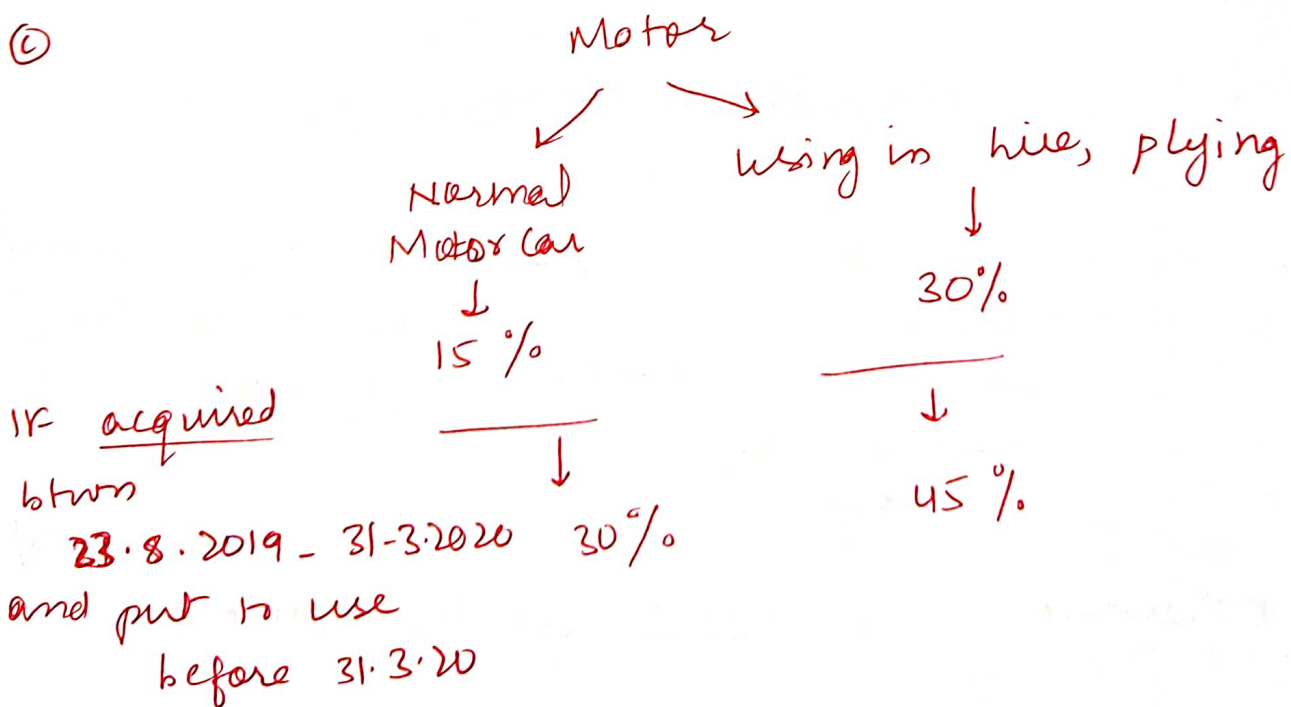 Ⓒ
Motor
Normal
Motor Car
using in hire, plying
15 %
30%
If acquired
btwn
23.8.2019 - 31-3.2020 30%
45 %
and put to use
before 31.3.20